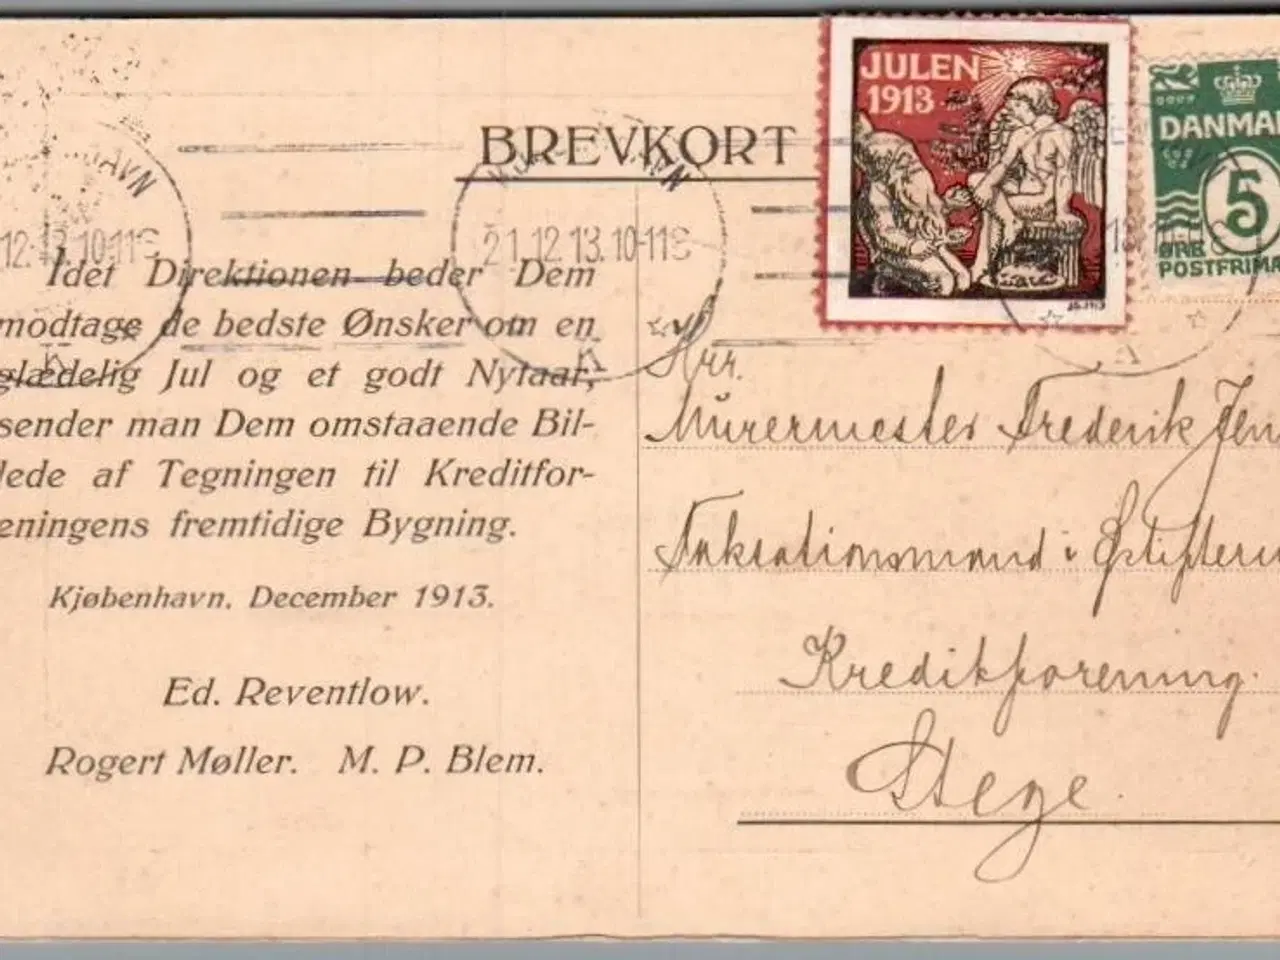 BREVKORT
JULEN
1913
DANMA
5
ØRE
POSTFRIM
21.12.13.10-11
Idet Direktionen beder Dem
modtage de bedste Ønsker om en
glædelig Jul og et godt Nytaar,
sender man Dem omstaaende Bil-
lede af Tegningen til Kreditfor-
eningens fremtidige Bygning.
Kjøbenhavn, December 1913.
Ed. Reventlow.
Rogert Møller. M. P. Blem.
Hrr.
Murermester Frederik Jen
Taksationsmand i Østiftern
Kreditforening.
Stege.